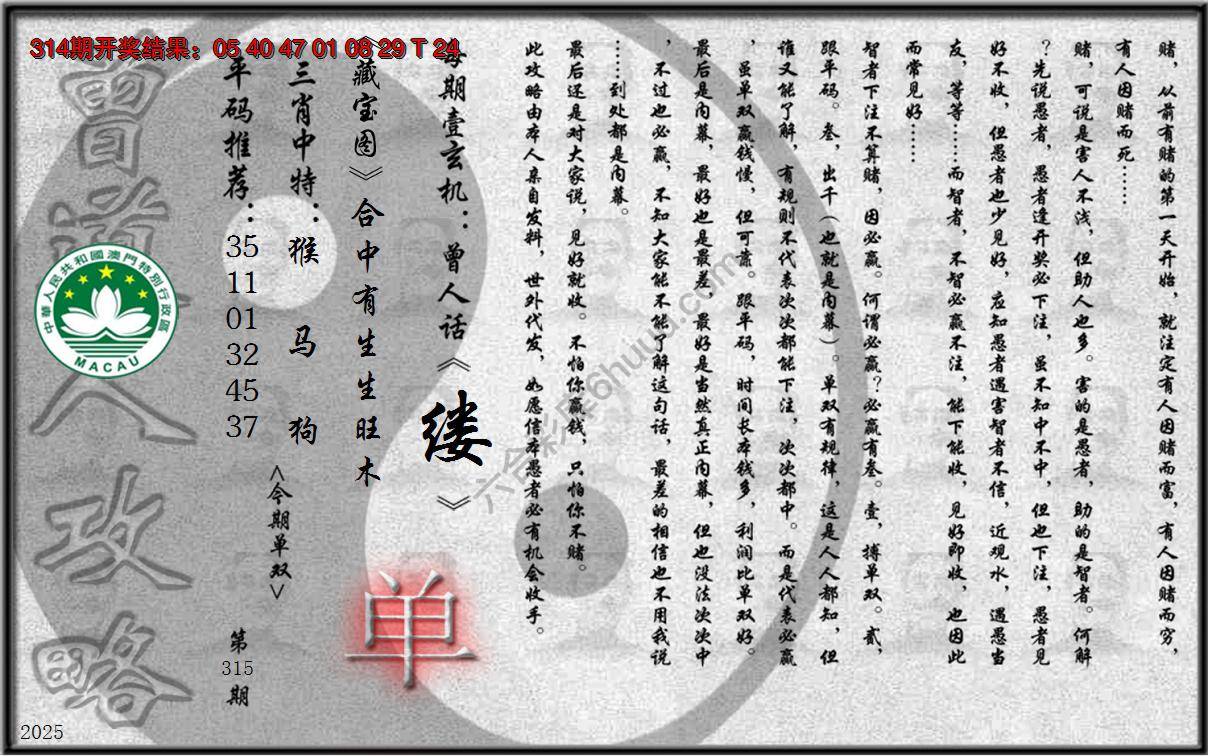 314期开奖结果：05 40 47 01 08 29 T 24
赌，从前有赌的第一天开始，就注定有人因赌而富，有人因赌而穷，
有人因赌而死……
赌，可说是害人不浅，但助人也多。害的是愚者，助的是智者。何解
？先说愚者，愚者逢开奖必下注，虽不知中不中，但也下注，愚者见
好不收，但愚者也少见好，应知愚者遇害智者不信，近观水，遇愚当
友，等等……而智者，不智必赢不注，能下能收，见好即收，也因此
而常见好……
智者下注不算赌，因必赢。何谓必赢？必赢有叁。壹，搏单双。贰，
跟平码。叁，出千（也就是内幕）。单双有规律，这是人人都知，但
谁又能了解，有规则不代表次次都能下注，次次都中。而是代表必赢
，虽单双赢钱慢，但可靠。跟平码，时间长本钱多，利润比单双好。
最后是内幕，最好也是最差，最好是当然真正内幕，但也没法次次中
，不过也必赢，不知大家能不能了解这句话，最差的相信也不用我说
……到处都是内幕。
最后还是对大家说，见好就收。不怕你赢钱，只怕你不赌。
此攻略由本人亲自发料，世外代发，如愿信本愚者必有机会收手。
每期壹玄机：曾人话《缕》
《藏宝图》合中有生生旺木
三肖中特：猴 马 狗
平码推荐：35 11 01 32 45 37
<今期单双>
单
第315期
曾道人攻略
中華人民共和國澳門特別行政區
MACAU
六合彩票6huuu.com
2025